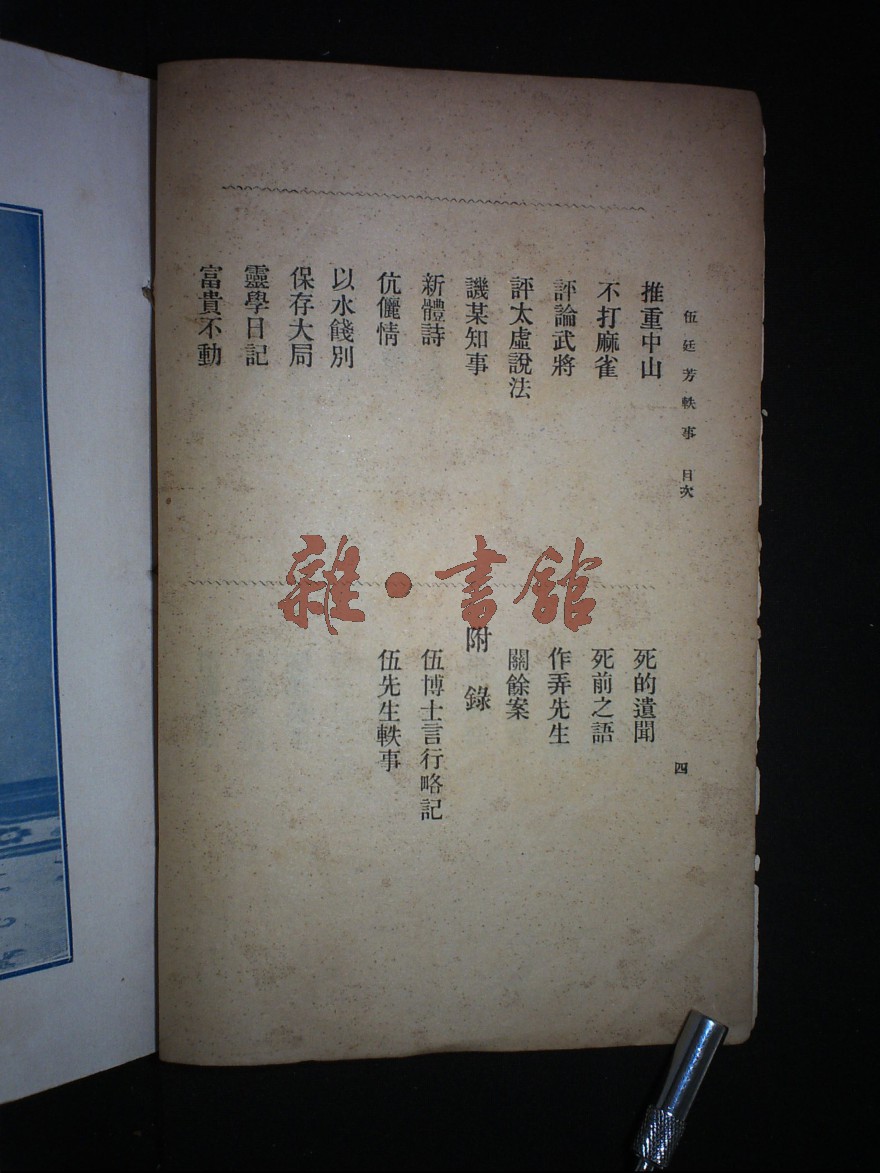 伍廷芳軼事 目次
四
推重中山
不打麻雀
評論武將
評太虛說法
譏某知事
新體詩
伉儷情
以水餞別
保存大局
靈學日記
富貴不動
死的遺聞
死前之語
作弄先生
關餘案
附錄
伍博士言行略記
伍先生軼事
雜·書館